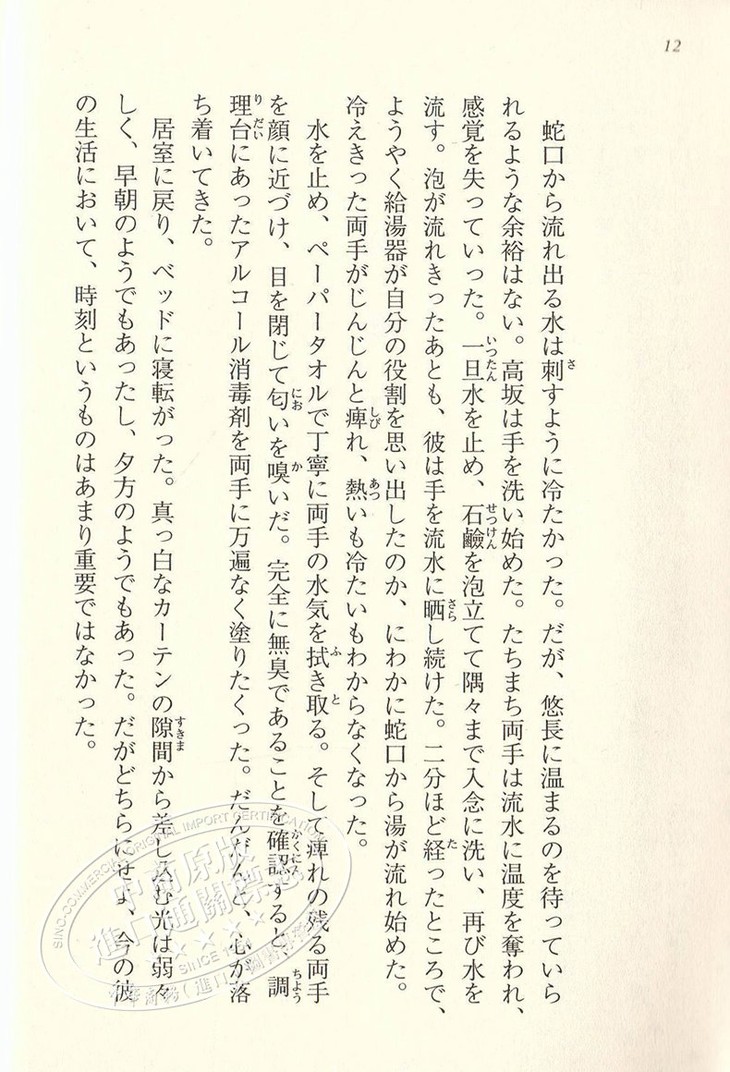 12
蛇口から流れ出る水は刺すように冷たかった。だが、悠長に温まるのを待っていら
れるような余裕はない。高坂は手を洗い始めた。たちまち両手は流水に温度を奪われ、
感覚を失っていった。一旦水を止め、石鹼を泡立てて隅々まで入念に洗い、再び水を
流す。泡が流れきったあとも、彼は手を流水に晒し続けた。二分ほど経ったところで、
ようやく給湯器が自分の役割を思い出したのか、にわかに蛇口から湯が流れ始めた。
冷えきった両手がじんじんと痺れ、熱いも冷たいもわからなくなった。
水を止め、ペーパータオルで丁寧に両手の水気を拭き取る。そして痺れの残る両手
を顔に近づけ、目を閉じて匂いを嗅いだ。完全に無臭であることを確認すると、調
理台にあったアルコール消毒剤を両手に万遍なく塗りたくった。だんだんと、心が落
ち着いてきた。
居室に戻り、ベッドに寝転がった。真っ白なカーテンの隙間から差し込む光は弱々
しく、早朝のようでもあったし、夕方のようでもあった。だがどちらにせよ、今の彼
の生活において、時刻というものはあまり重要ではなかった。
SINO-COMMERCIAL ORIGINAL IMPORT CERTIFICATION
中商原版
進口通關標志
SINCE